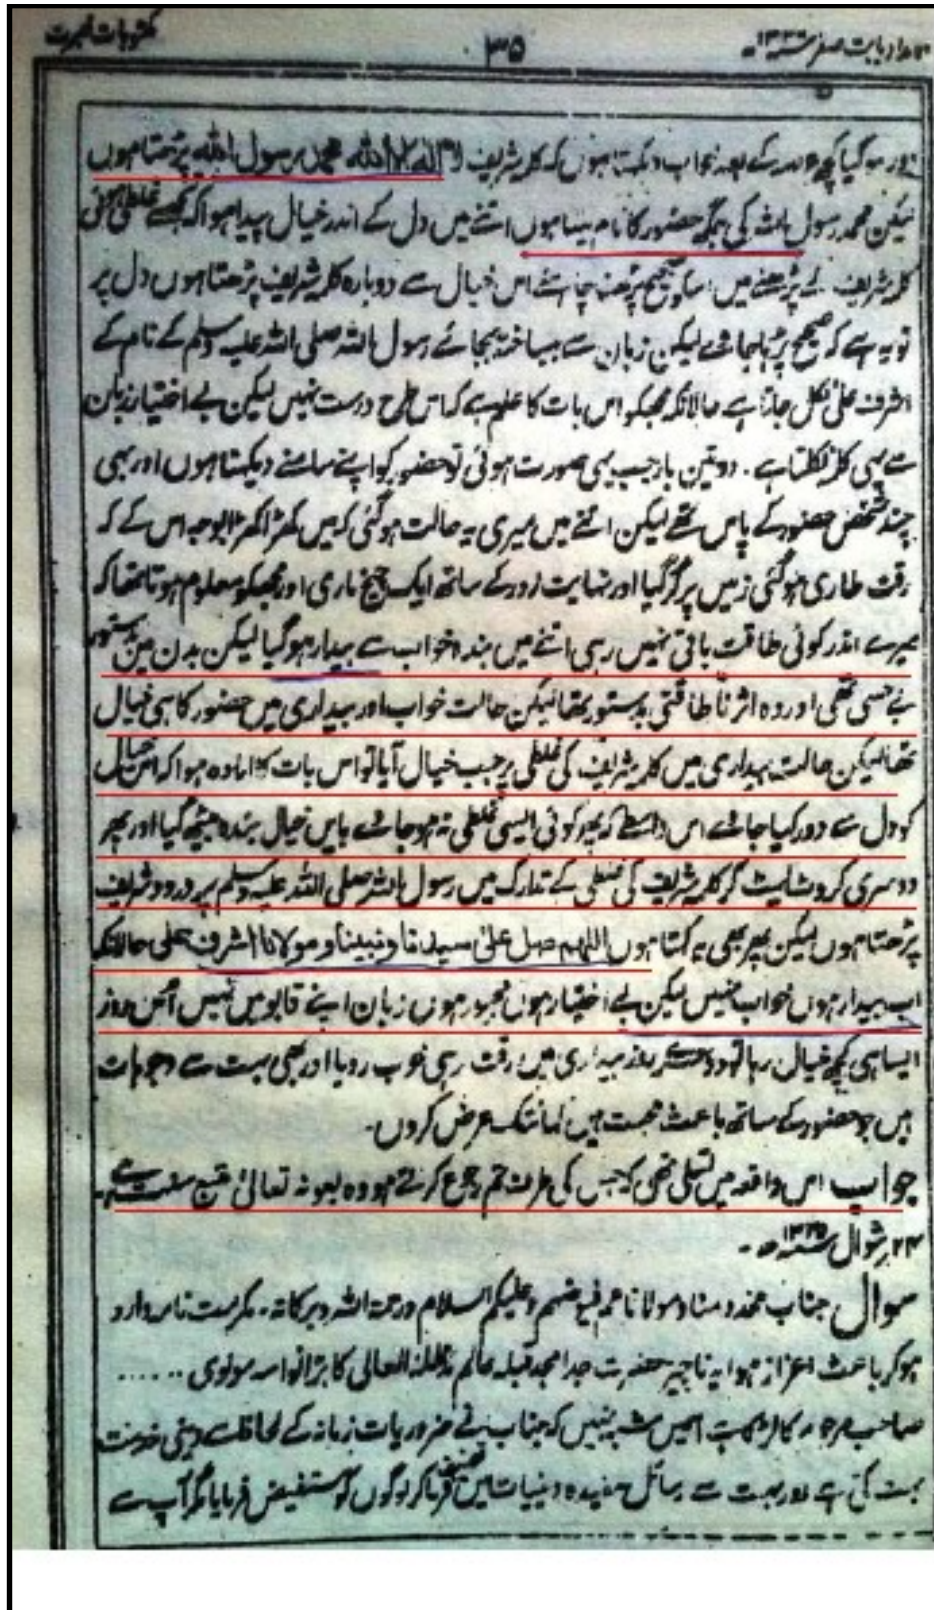 مکتوبات خبرت
۳۵
الامداد بابت صفر ۱۳۳۶ھ
اور سو گیا کچھ عرصہ کے بعد خواب دیکھتا ہوں کہ کلمہ شریف لا الہ الا اللہ محمد رسول اللہ پڑھتا ہوں
لیکن محمد رسول اللہ کی جگہ حضور کا نام لیتا ہوں اتنے میں دل کے اندر خیال پیدا ہوا کہ مجھسے غلطی ہوئی
کلمہ شریف کے پڑھنے میں اسکو صحیح پڑھنا چاہئے اس خیال سے دوبارہ کلمہ شریف پڑھتا ہوں دل پر
تو یہ ہے کہ صحیح پڑھا جاوے لیکن زبان سے بیساختہ بجائے رسول اللہ صلی اللہ علیہ وسلم کے نام کے
اشرف علی نکل جاتا ہے حالانکہ مجھکو اس بات کا علم ہے کہ اس طرح درست نہیں لیکن بے اختیار زبان
سے یہی کلمہ نکلتا ہے ۔ دو تین بار جب یہی صورت ہوئی تو حضور کو اپنے سامنے دیکھتا ہوں اور بھی
چند شخص حضور کے پاس تھے لیکن اتنے میں میری یہ حالت ہوگئی کہ میں کھڑا کھڑا بوجہ اس کے کہ
رقت طاری ہوگئی زمین پر گر گیا اور نہایت زور کے ساتھ ایک چیخ ماری اور مجھکو معلوم ہوتا تھا کہ
میرے اندر کوئی طاقت باقی نہیں رہی اتنے میں بندہ خواب سے بیدار ہوگیا لیکن بدن میں بدستور
بے حسی تھی اور وہ اثر ناطاقتی بدستور تھا لیکن حالت خواب اور بیداری میں حضور کا ہی خیال
تھا لیکن حالت بیداری میں کلمہ شریف کی غلطی پر جب خیال آیا تو اس بات کا ارادہ ہوا کہ اس خیال
کو دل سے دور کیا جائے اس واسطے کہ پھر کوئی ایسی غلطی نہ ہو جائے بایں خیال بندہ بیٹھ گیا اور پھر
دوسری کروٹ لیٹ کر کلمہ شریف کی غلطی کے تدارک میں رسول اللہ صلی اللہ علیہ وسلم پر درود شریف
پڑھتا ہوں لیکن پھر بھی یہ کہتا ہوں اللهم صل على سيدنا ونبينا ومولانا اشرف علی حالانکہ
اب بیدار ہوں خواب نہیں لیکن بے اختیار ہوں مجبور ہوں زبان اپنے قابو میں نہیں اس روز
ایسا ہی کچھ خیال رہا تو دوسرے روز بیداری میں رقت رہی خوب رویا اور بھی بہت سے وجوہات
ہیں جو حضور کے ساتھ باعث محبت ہیں کہانتک عرض کروں۔
جواب اس واقعہ میں تسلی تھی کہ جس کی طرف تم رجوع کرتے ہو وہ بعونہ تعالی متبع سنت ہے۔
۲۴ شوال ۱۳۳۵ھ ۔
سوال جناب مخدومنا و مولانا عمم فیوضہم وعلیکم السلام ورحمۃ اللہ وبرکاتہ ۔ مکرمت نامہ وارد
ہوکر باعث اعزاز ہوا یہ ناچیز حضرت جد امجد قبلہ عالم مدظلہ العالی کا بڑا نواسہ مولوی ......
صاحب کا لڑکا ہے اسمیں شبہ نہیں کہ جناب نے ضروریات زمانہ کے لحاظ سے دینی خدمت
بہت کی ہے اور بہت سے رسائل مفیدہ دینیات میں تصنیف فرما کر لوگوں کو مستفیض فرمایا مگر آپ سے